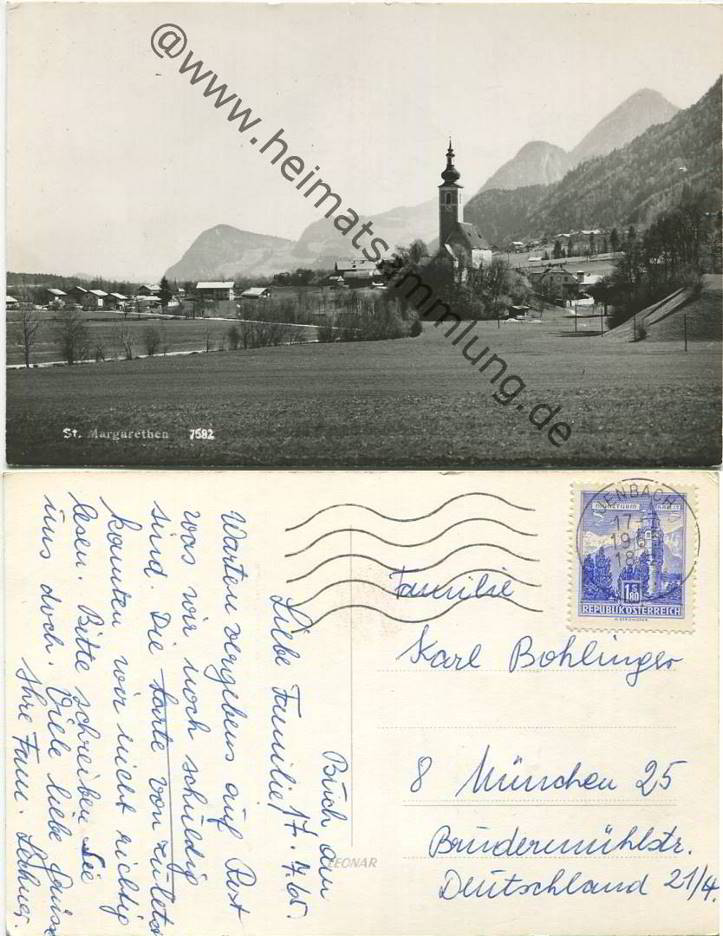 @www.heimatsammlung.de
St. Margarethen 7582
JENBACH
17-
196
18
MÜNZTURM
1.80
REPUBLIK ÖSTERREICH
Familie
Karl Bohlinger
8 München 25
Brudermühlstr.
Deutschland 21/4.
LEONAR
Buch am 17.7.65.
Liebe Familie!
Warten vergebens auf Post
was wir noch schuldig
sind. Die Karte von zuletzt
konnten wir nicht richtig
lesen. Bitte schreiben Sie
uns doch. Viele liebe Grüsse
Ihre Fam.